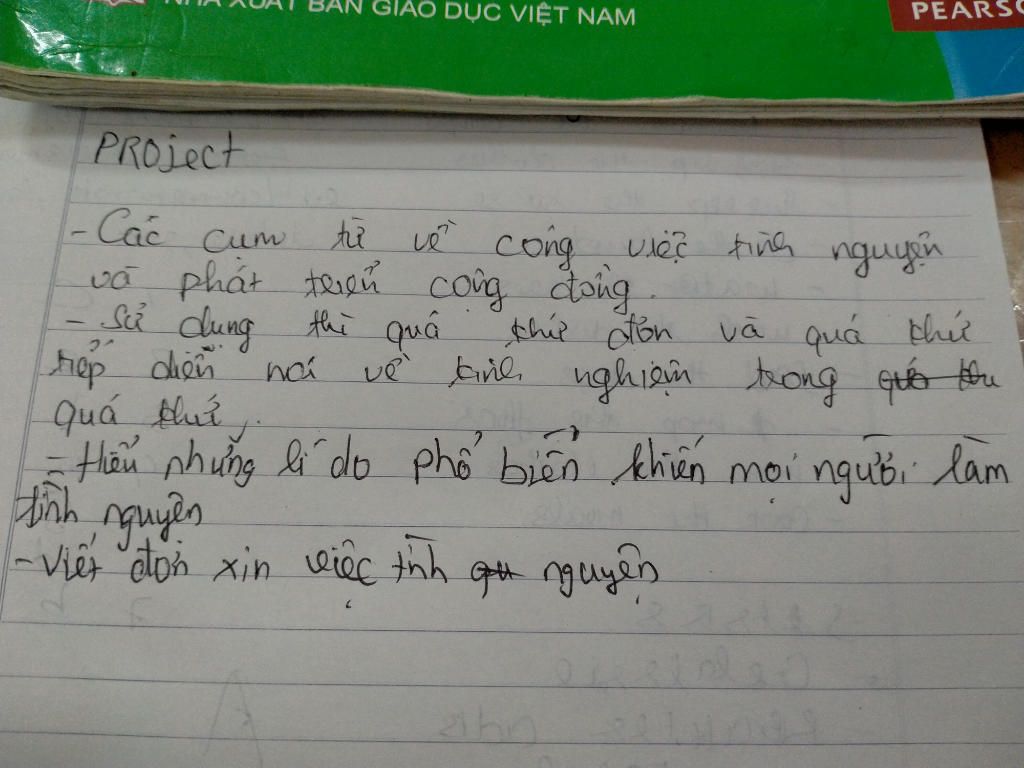 NHÀ XUẤT BẢN GIÁO DỤC VIỆT NAM
PEARSO
PROject
- Các cụm từ về công việc tình nguyện
và phát triển cộng đồng.
- Sử dụng thì quá khứ đơn và quá khứ
tiếp diễn nói về kinh nghiệm trong quá khu
quá khứ.
- Hiểu những lí do phổ biến khiến mọi người làm
tình nguyện
- Viết đơn xin việc tình qu nguyện